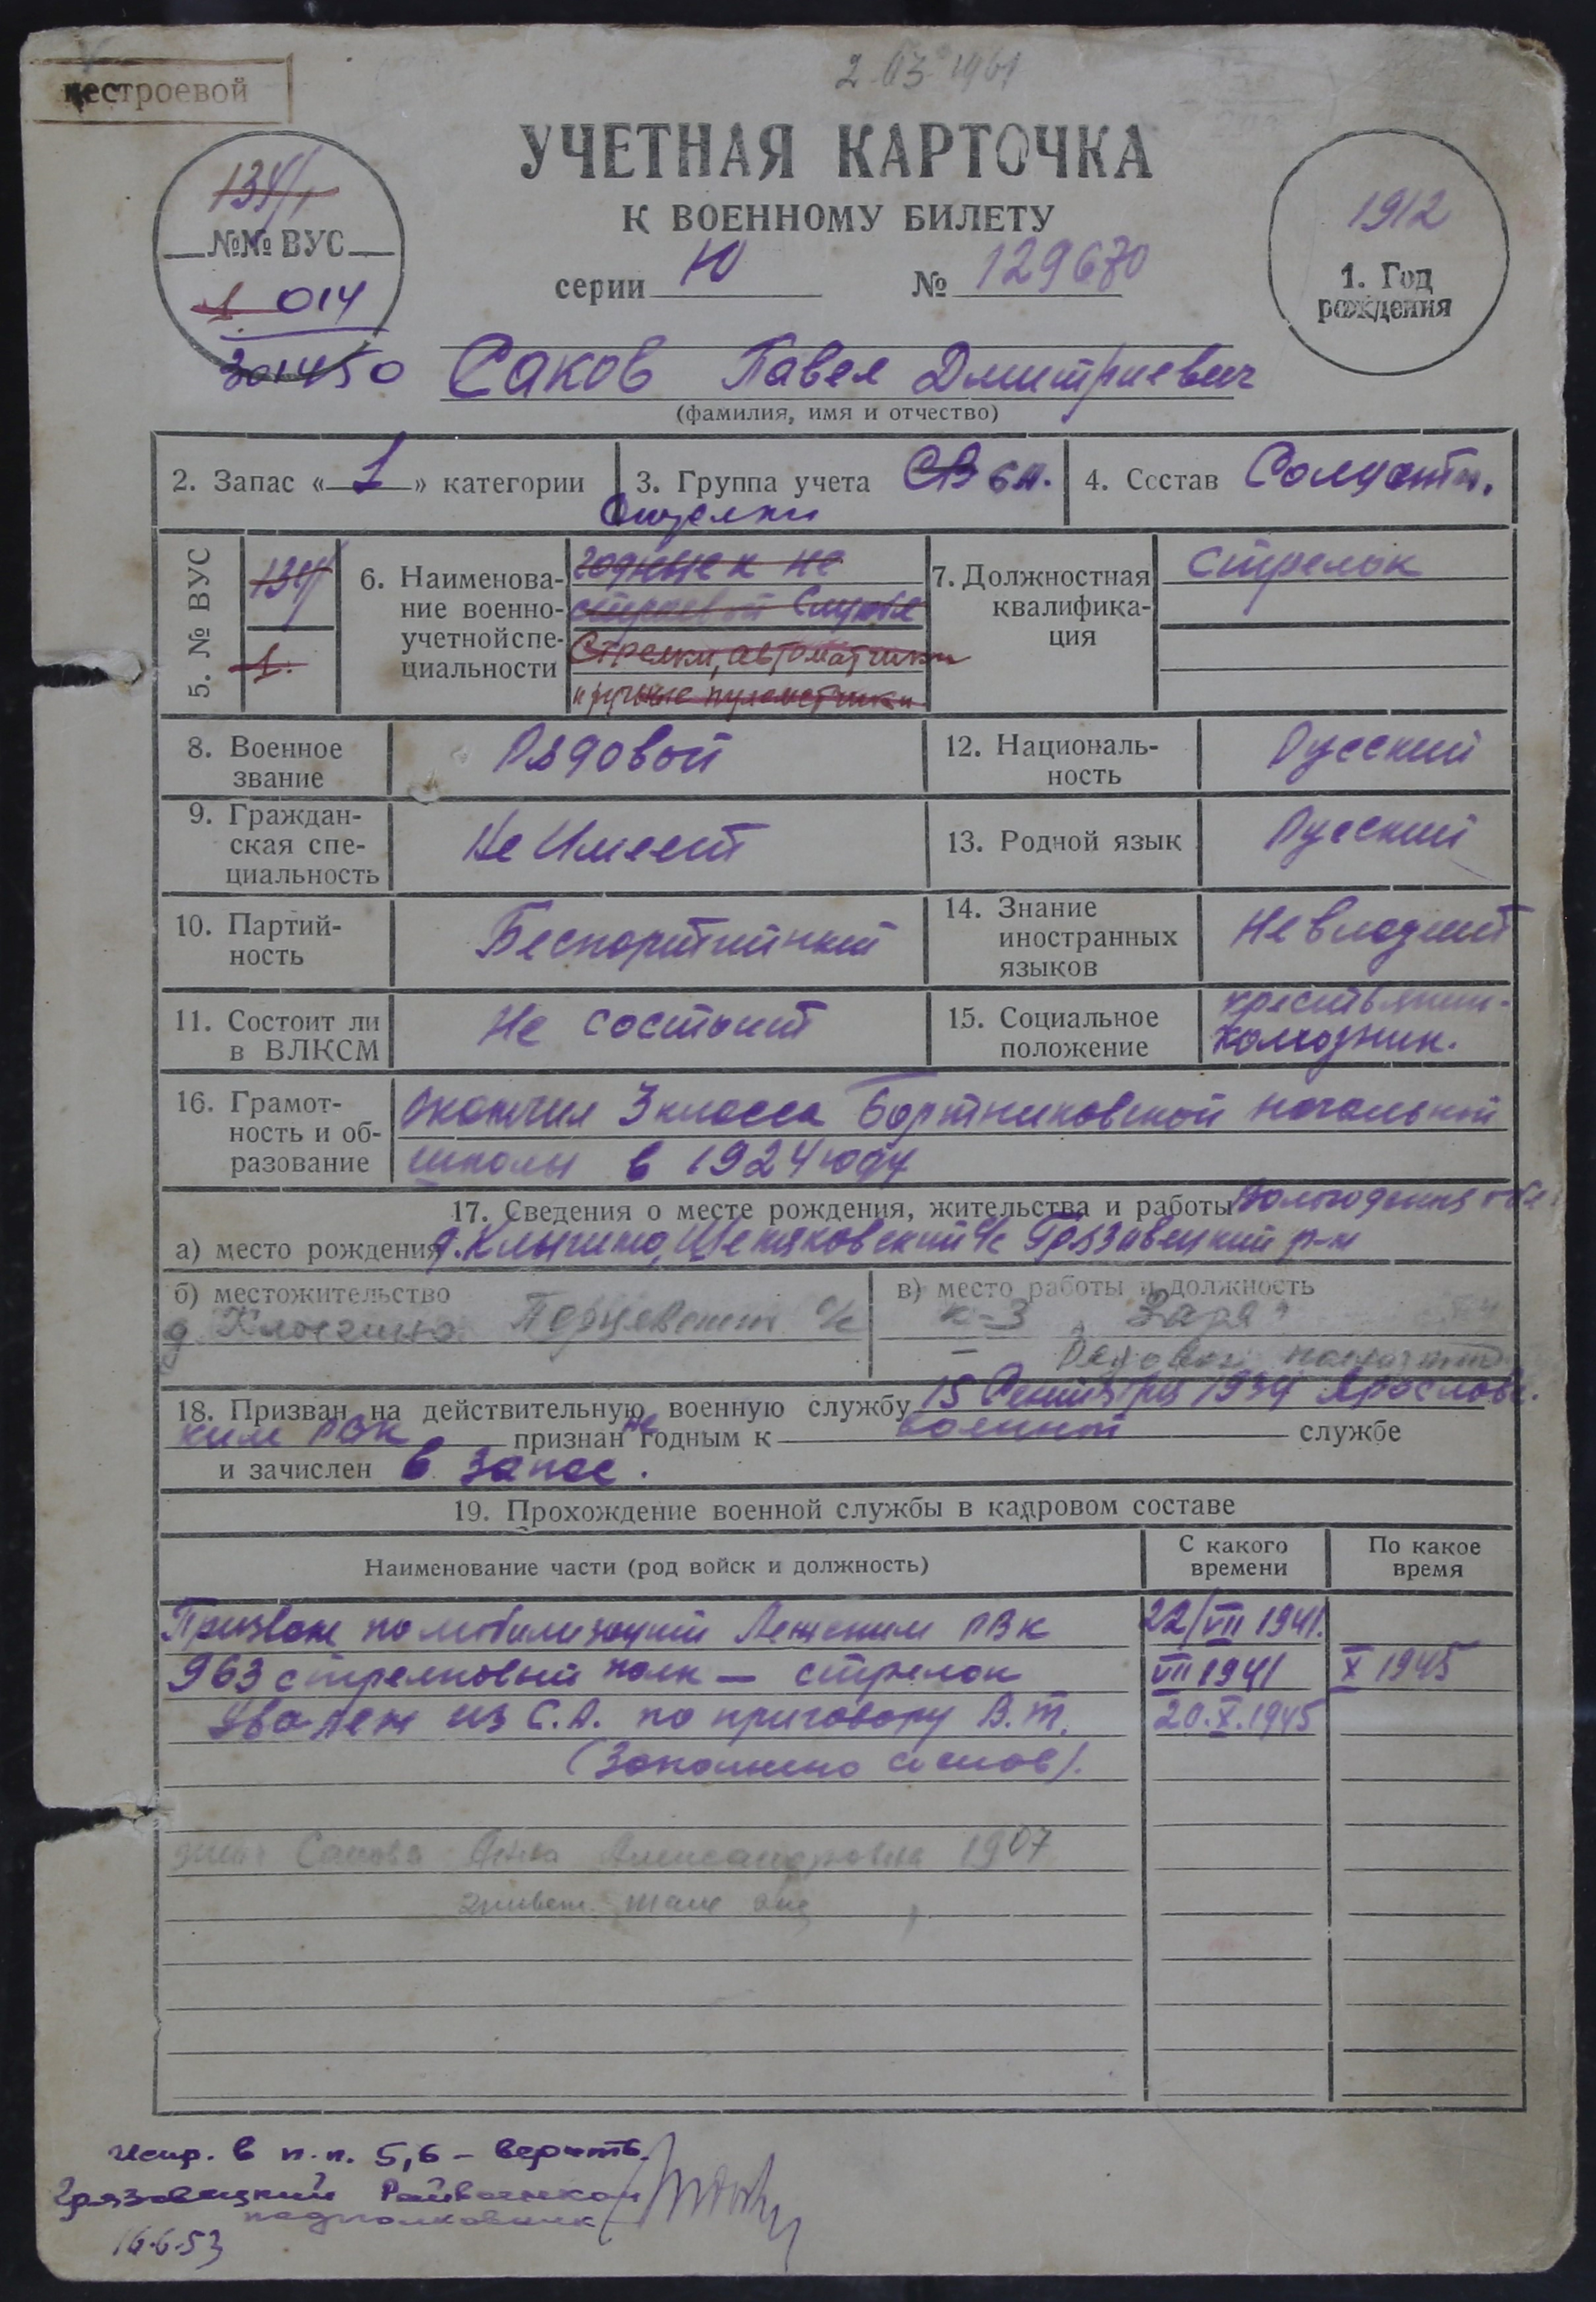 нестроевой
2 03 1961
УЧЕТНАЯ КАРТОЧКА
К ВОЕННОМУ БИЛЕТУ
серии Ю № 129670
134/1
№№ ВУС
1 014
301450
1912
1. Год
рождения
Саков Павел Дмитриевич
(фамилия, имя и отчество)
2. Запас « 1 » категории
3. Группа учета СВ
4. Состав Солдаты.
5. № ВУС
134/1
1.
6. Наименова-
ние военно-
учетной спе-
циальности
годные к не
строевой службе
Стрелки, автоматчики
и ручные пулеметчики
7. Должностная
квалифика-
ция
Стрелок
8. Военное
звание
Рядовой
12. Националь-
ность
Русский
9. Граждан-
ская спе-
циальность
Не Имеет
13. Родной язык
Русский
10. Партий-
ность
Беспартийный
14. Знание
иностранных
языков
Не владеет
11. Состоит ли
в ВЛКСМ
Не состоит
15. Социальное
положение
крестьянин-
колхозник.
16. Грамот-
ность и об-
разование
окончил 3 класса Бортниковской начальной
школы в 1924 году
17. Сведения о месте рождения, жительства и работы Вологодская обл
а) место рождения д. Клыгино, с/с Грязовецкий р-н
б) местожительство
д. Клыгино с/с
в) место работы и должность
к-з "Заря"
Рядовой
18. Призван на действительную военную службу 15 Сентября 1934 Ярославс.
ким РВК признан не годным к военной службе
и зачислен в запас.
19. Прохождение военной службы в кадровом составе
Наименование части (род войск и должность)
С какого
времени
По какое
время
Призван по мобилизации Лежским РВК 22/VII 1941.
963 стрелковый полк — стрелок VII 1941 X 1945
Уволен из С.А. по приговору В.Т. 20.X.1945
(Записано со слов).
жена Сакова Анна Александровна 1907
Испр. в п.п. 5,6 - верить
Грязовецкий Райвоенком
подполковник
16.6.53